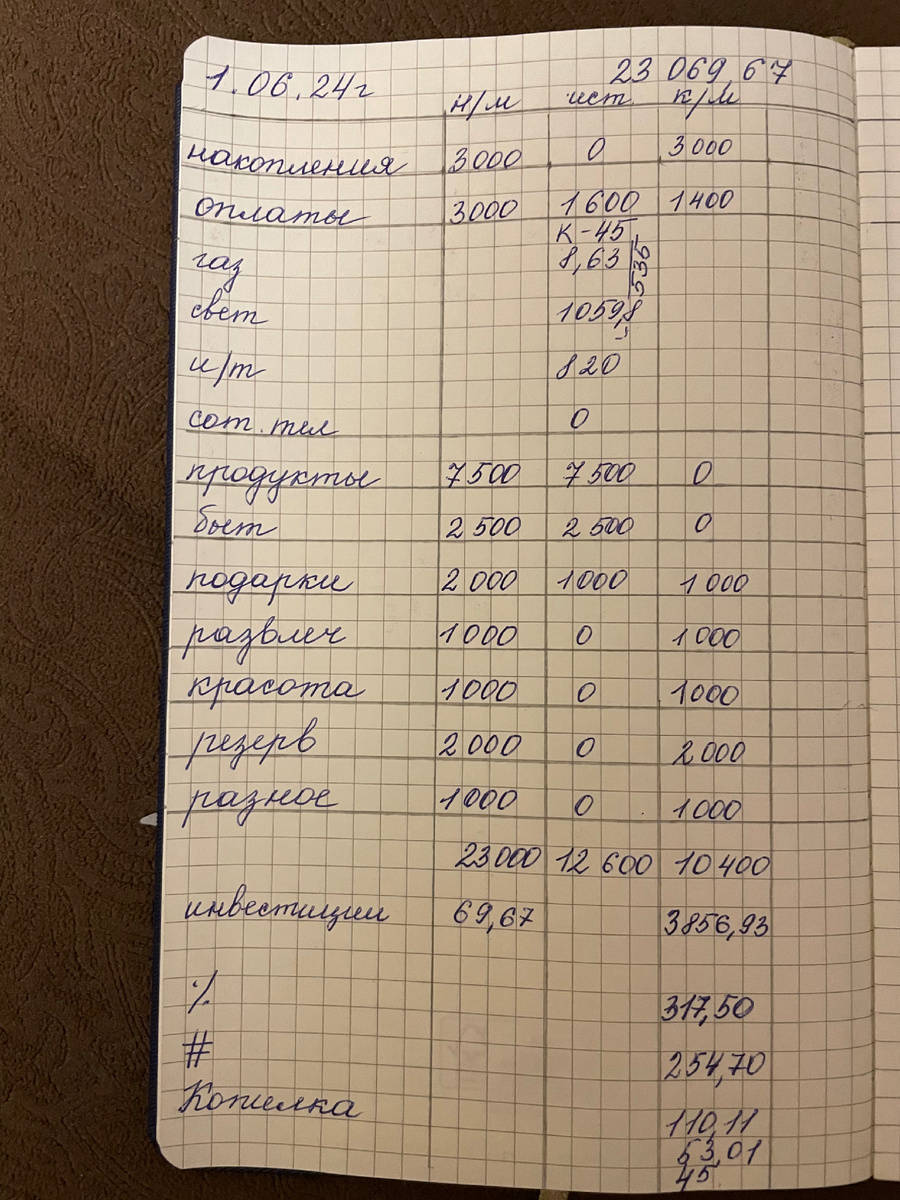 1.06.24г 23 069,67
н/м ист. к/м
накопления 3000 0 3000
оплаты 3000 1600 1400
К-45
газ 8,63 535
свет 1059,8
и/т 820
сот.тел 0
продукты 7500 7500 0
быт 2500 2500 0
подарки 2000 1000 1000
развлеч 1000 0 1000
красота 1000 0 1000
резерв 2000 0 2000
разное 1000 0 1000
23000 12 600 10400
инвестиции 69,67 3856,93
% 317,50
# 254,70
Копилка
110,11
53,01
45